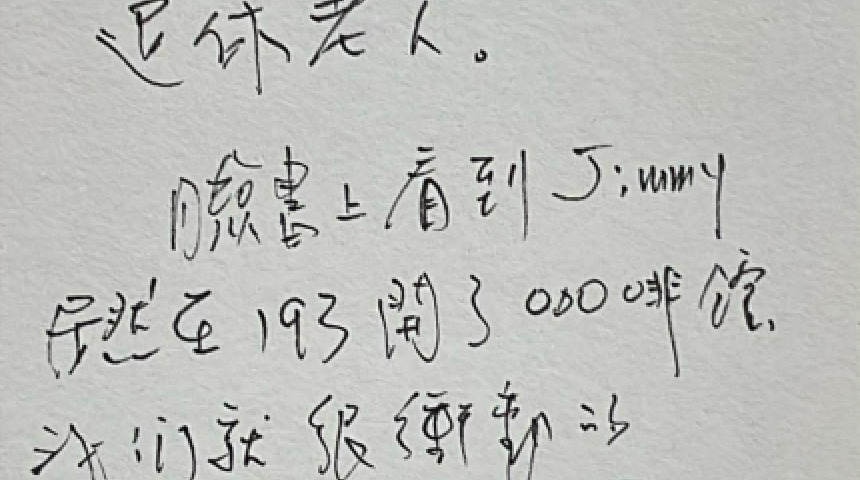 退休老人。
臉書上看到 Jimmy
居然在193開了咖啡館,
我们就很衝動的